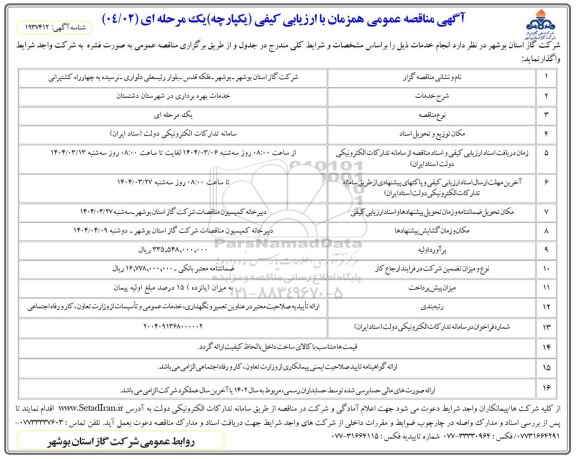 آگهی مناقصه عمومی همزمان با ارزیابی کیفی (یکپارچه) یک مرحله ای (۰۴/۰۲)
شناسه آگهی: ۱۹۳۷۴۱۲
شرکت گاز استان بوشهر در نظر دارد انجام خدمات ذیل را براساس مشخصات و شرایط کلی مندرج در جدول و از طریق برگزاری مناقصه عمومی به صورت فشرده به شرکت واجد شرایط
واگذار نماید:
۱ نام و نشانی مناقصه گزار شرکت گاز استان بوشهر ـ بوشهر ـ فلکه قدس ـ بلوار رئیسعلی دلواری ـ نرسیده به چهارراه کشتیرانی
۲ شرح خدمات خدمات بهره برداری در شهرستان دشتستان
۳ نوع مناقصه یک مرحله ای
۴ مکان توزیع و تحویل اسناد سامانه تدارکات الکترونیکی دولت (ستاد ایران)
۵ زمان دریافت اسناد ارزیابی کیفی و اسناد مناقصه از سامانه تدارکات الکترونیکی دولت (ستاد ایران) از ساعت ۰۸:۰۰ روز سه شنبه ۱۴۰۴/۰۳/۰۶ لغایت تا ساعت ۰۸:۰۰ روز سه شنبه ۱۴۰۴/۰۳/۱۳
۶ آخرین مهلت ارسال اسناد ارزیابی کیفی و پاکتهای پیشنهادی از طریق سامانه تدارکات الکترونیکی دولت (ستاد ایران) تا ساعت ۰۸:۰۰ روز سه شنبه ۱۴۰۴/۰۳/۲۷
۷ مکان تحویل ضمانتنامه و زمان تحویل پیشنهادها و اسناد ارزیابی کیفی دبیرخانه کمیسیون مناقصات شرکت گاز استان بوشهر ـ سه شنبه ۱۴۰۴/۰۳/۲۷
۸ مکان و زمان گشایش پیشنهادها دبیرخانه کمیسیون مناقصات شرکت گاز استان بوشهر ـ دوشنبه ۱۴۰۴/۰۴/۰۹
۹ برآورد اولیه ۳۳۵,۵۴۸,۰۰۰,۰۰۰ ریال
۱۰ نوع و میزان تضمین شرکت در فرایند ارجاع کار ضمانتنامه معتبر بانکی ـ ۱۶,۷۷۸,۰۰۰,۰۰۰ ریال
۱۱ میزان پیش پرداخت به میزان (پانزده) ۱۵ درصد مبلغ اولیه پیمان
۱۲ رتبه بندی ارائه تأییدیه صلاحیت معتبر در عناوین تعمیر و نگهداری، خدمات عمومی و تأسیسات از وزارت تعاون، کار و رفاه اجتماعی
۱۳ شماره فراخوان در سامانه تدارکات الکترونیکی دولت (ستاد ایران) ۲۰۰۴۰۹۱۳۶۸۰۰۰۰۰۲
۱۴ قیمت ها متناسب با کالای ساخت داخل با لحاظ کیفیت ارائه گردد.
۱۵ ارائه گواهینامه تایید صلاحیت ایمنی پیمانکاری از وزارت تعاون، کار و رفاه اجتماعی الزامی می باشد.
۱۶ ارائه صورت های مالی حسابرسی شده توسط حسابداران رسمی، مربوط به سال ۱۴۰۲ یا آخرین سال عملکرد شرکت الزامی می باشد.
از کلیه شرکت ها/پیمانکاران واجد شرایط دعوت می شود جهت اعلام آمادگی و شرکت در مناقصه از طریق سامانه تدارکات الکترونیکی دولت به آدرس www.SetadIran.ir اقدام نمایند تا
پس از بررسی اسناد و مدارک واصله در چارچوب ضوابط و مقررات داخلی از شرکت های واجد شرایط جهت دریافت اسناد و مدارک مناقصه دعوت بعمل آید. تلفن تماس: ۰۷۷۳۳۳۳۷۶۰۳-
۰۷۷۳۱۶۶۴۲۹۱/ فکس: ۳۳۳۳۰۹۶۴-۰۷۷ شماره تاییدیه فکس: ۳۱۶۶۴۱۱۵-۰۷۷
روابط عمومی شرکت گاز استان بوشهر
ParsNamadData
۰۲۱-۸۸۳۴۹۶۷۰-۵